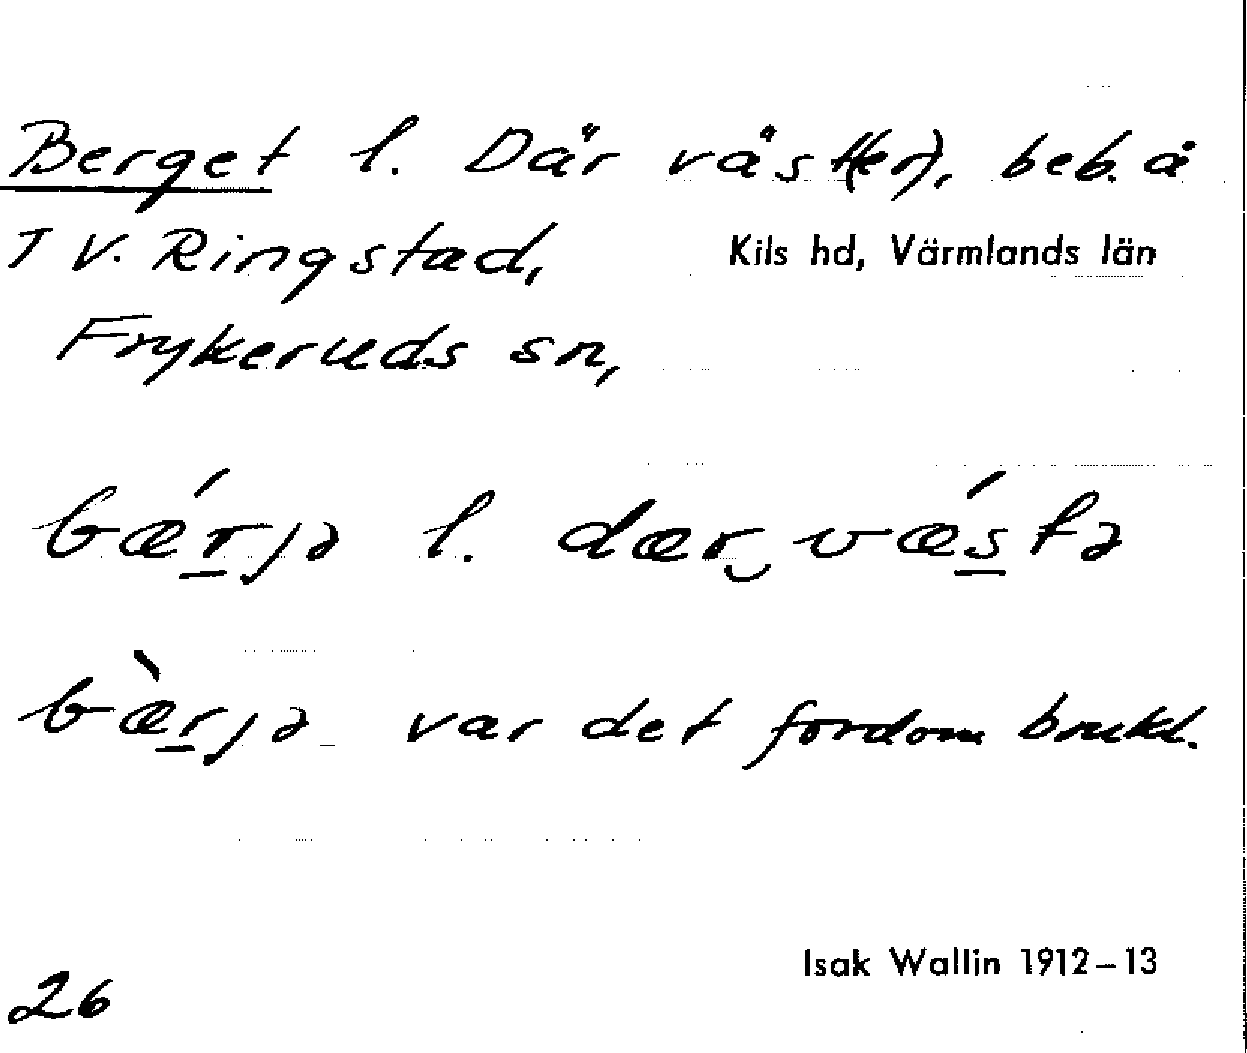 Berget l. Där väst(er), beb. å
T V. Ringstad,
Kils hd, Värmlands län
Frykeruds sn,
bǽrjə l. dær‿vǽstə
bæ̀rjə var det fordom brukl.
Isak Wallin 1912–13
26